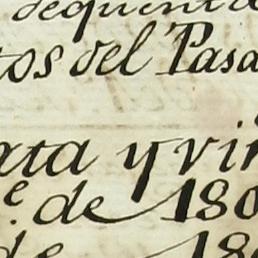 tos del Pasa
ata y vin
e. de 180
de 180